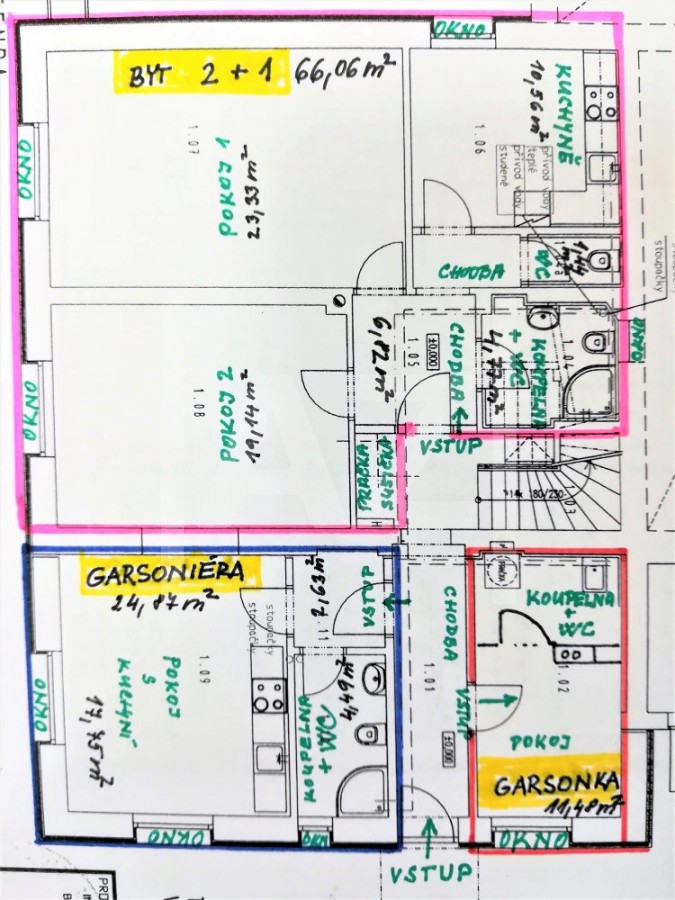 OKNO
BYT 2 + 1 66,06 m²
KUCHYNĚ
10,56 m²
1.06
přívod vody
teplé
přívod vody
studené
OKNO
1.07
POKOJ 1
23,33 m²
CHODBA
WC
1,44 m²
stoupačky
OKNO
1.08
POKOJ 2
19,14 m²
6,82 m²
1.05
±0.000
CHODBA
KOUPELNA
+ WC
4,77 m²
1.04
OKNO
VSTUP
PRAČKA
SUŠIČKA
14x 180/230
1.03
GARSONIÉRA
24,87 m²
2,63 m²
1.11
VSTUP
stoupačky
stoupačky
OKNO
1.09
POKOJ
S
KUCHYNÍ
17,75 m²
KOUPELNA
+ WC
4,49 m²
OKNO
OKN
CHODBA
1.01
±0.000
VSTUP
VSTUP
pračka
KOUPELNA
+
WC
1.02
POKOJ
GARSONKA
11,48 m²
OKNO
PRO